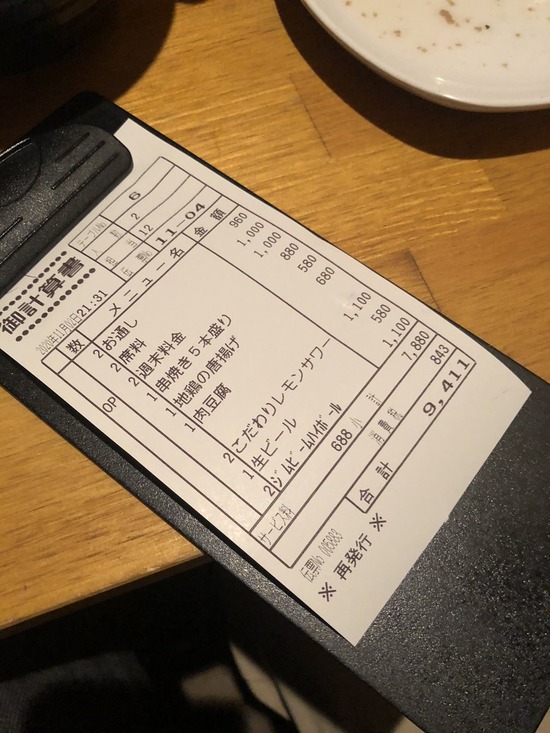 御計算書
2020年11月 21:31
テーブルNo 6
人数 2
担当 12
伝票No 11-04
数 メニュー名 金額
2 お通し 960
2 席料 1,000
2 週末料金 1,000
1 串焼き5本盛り 880
1 地鶏の唐揚げ 580
1 肉豆腐 680
OP
2 こだわりレモンサワー 1,100
1 生ビール 580
2 ジムビームハイボール 1,100
小計 7,880
サービス料 688 消費税 843
合計 9,411
伝票No
※ 再発行 ※